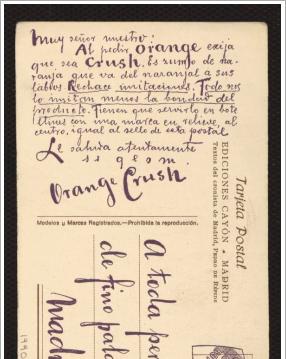 Muy señor nuestro:
Al pedir Orange exija
que sea Crush. Es zumo de na-
ranja que va del naranjal a sus
labios Rechace imitaciones. Todo nos
lo imitan menos la bondad del
producto. Tienen que servirlo en bote
llines con una marca en relieve, al
centro, igual al sello de esta postal
Le saluda atentamente
s s q e s m.
Orange Crush
Modelos y Marcas Registrados.—Prohibida la reproducción.
Tarjeta Postal
EDICIONES CAYÓN • MADRID
Textos del cronista de Madrid,
A toda per
de fino pala
Madr